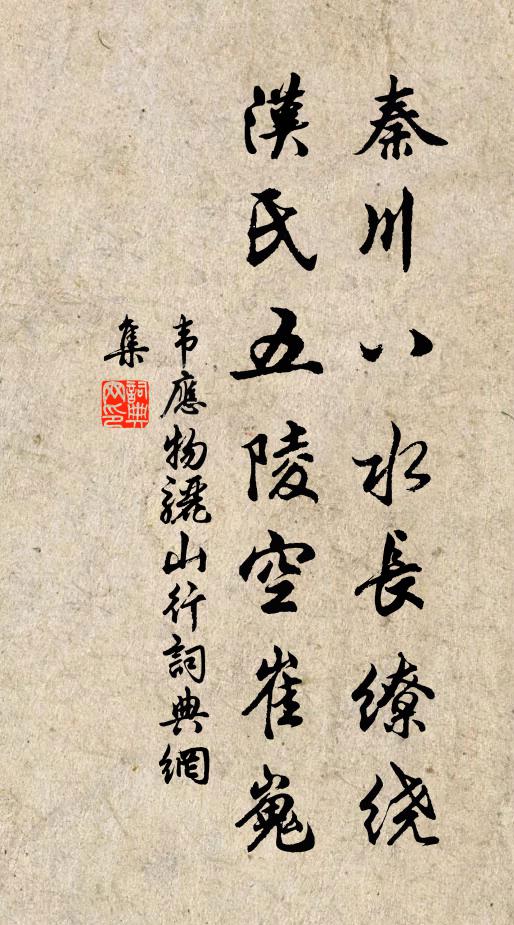 秦川八水長繚绕
漢氏五陵空崔嵬
韦應物驪山行詞典網
集
詞典网印